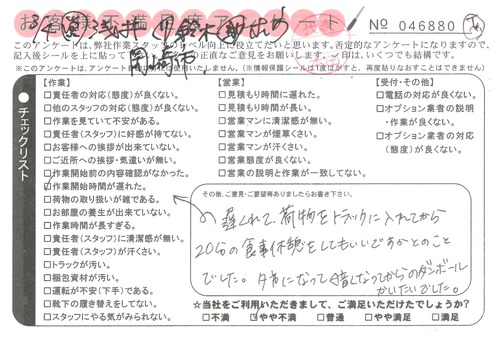 お客様満足アンケート
№ 046880
このアンケートは、弊社作業スタッフのレベル向上に役立てたいと思います。否定的なアンケートになりますので、
記入後シールを上に貼って
の正直なご意見をお願いします。
印は、いくつでも結構です。
※このアンケートは、
使用いたしません。(※情報保護シールは1度はがすと、再度貼りなおすことはできません)
岡崎市
●チェックリスト
【作業】
□責任者の対応(態度)が良くない。
□他のスタッフの対応(態度)が良くない。
□作業を見ていて不安がある。
□責任者(スタッフ)に好感が持てない。
□お客様への挨拶が出来ていない。
□ご近所への挨拶・気遣いが無い。
□作業開始前の内容確認がなかった。
□作業開始時間が遅れた。
□荷物の取り扱いが雑である。
□お部屋の養生が出来ていない。
□作業時間が長すぎる。
□責任者(スタッフ)に清潔感が無い。
□責任者(スタッフ)が汗くさい。
□トラックが汚い。
□梱包資材が汚い。
□運転が不安(下手)である。
□靴下の履き替えをしてない。
□スタッフにやる気がみられない。
【営業】
□見積もり時間に遅れた。
□見積もり時間が長い。
□営業マンに清潔感が無い。
□営業マンが煙草くさい。
□営業マンが汗くさい。
□営業態度が良くない。
□営業の説明と作業が一致してない。
【受付・その他】
□電話の対応が良くない。
□オプション業者の説明
・作業が良くない。
□オプション業者の対応
(態度)が良くない。
その他、ご意見・ご要望等ありましたらお書き下さい。
遅くれて、荷物をトラックに入れてから
20分の食事休憩をしてもいいですかとのこと
でした。夕方になって暗くなってからのダンボール
かいたいでした。
☆当社をご利用いただきまして、ご満足いただけたでしょうか?
□不満 □やや不満 □普通 □やや満足 □満足